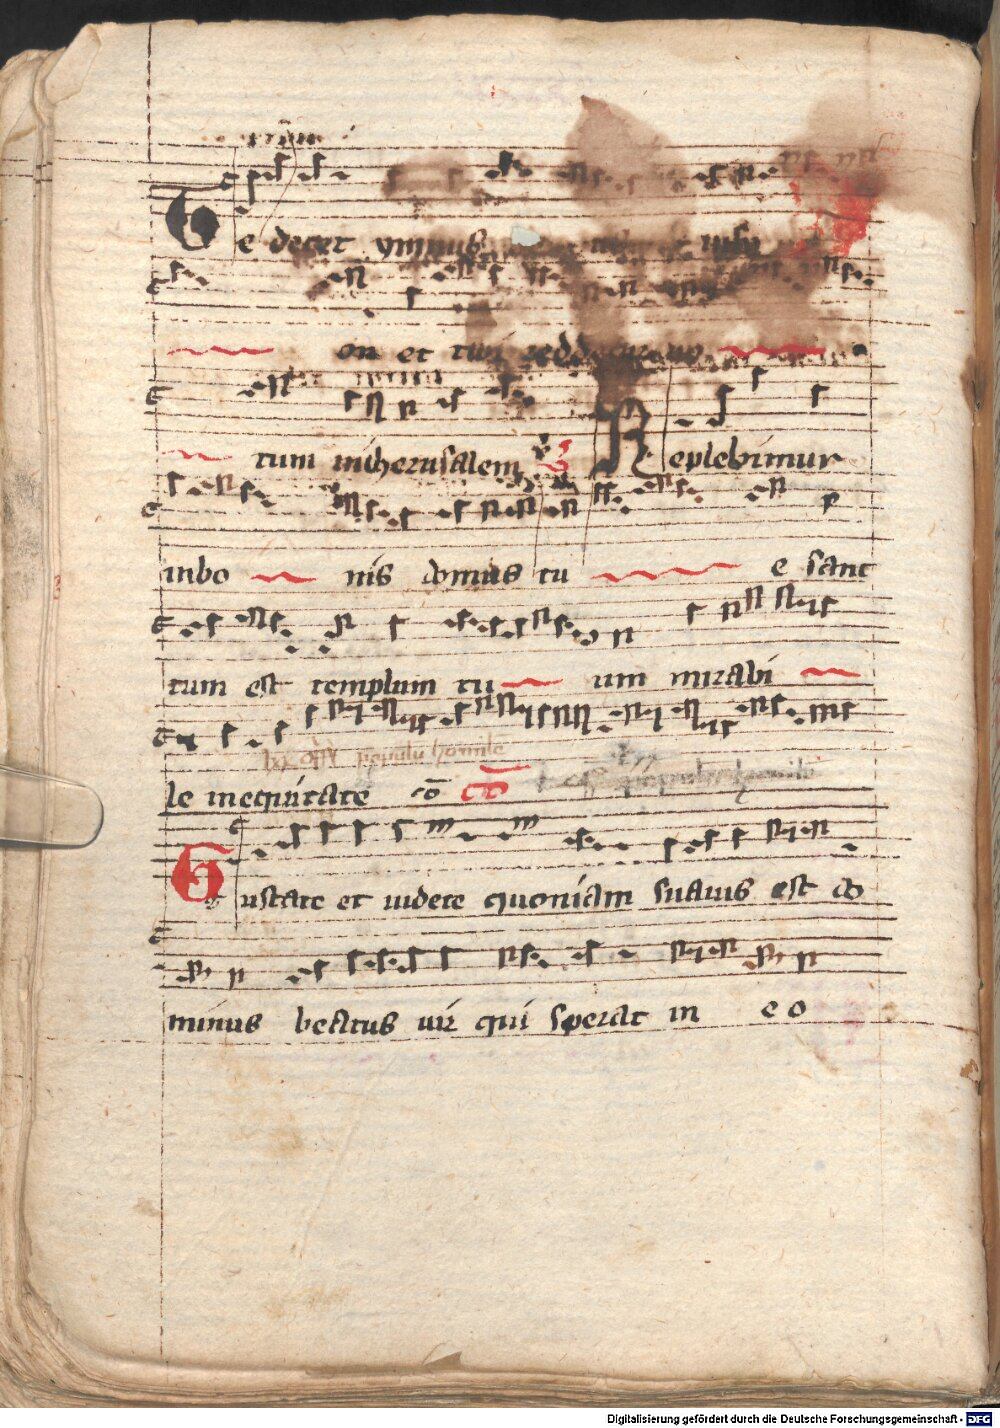 Te decet ymnus
on et tibi reddetur vo
tum iniherusalem Replebimur
inbo nis domus tu e sanc
tum est templum tu um mirabi
le inequitate cō
populū humilē
Gustate et uidete quoniam suauis est do
minus beatus uir qui sperat in e o
Digitalisierung gefördert durch die Deutsche Forschungsgemeinschaft - DFG